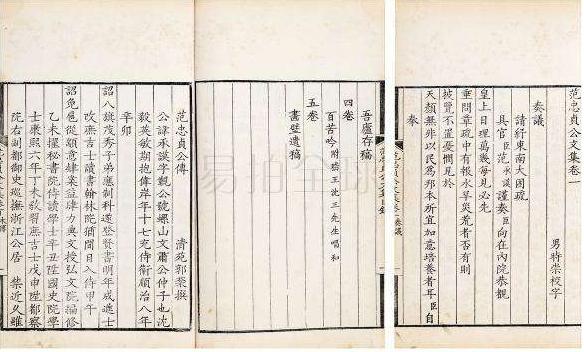 范忠貞公文集卷一
男時崇校字
奏議
請紓東南大困疏
具官臣范承謨謹奏臣向在內院恭覩
皇上日理萬幾每見必先
垂問章疏中有報水旱災荒者否有則
披覽不置憂憫見於
天顏無非以民爲邦本所宜加意培養者耳臣自
奉
吾廬存稿
四卷
百苦吟 附嵇王沈三先生唱和
五卷
畫壁遺稿
范忠貞公傳
清苑郭棻撰
公諱承謨字覲公號螺山文肅公仲子也沈
毅英敏期抱偉岸年十七充侍衞順治八年
辛卯
詔八旗茂秀子弟應制科遂登賢書明年成進士
改庶吉士讀書翰林院猶間日入侍甲午
詔免扈從顓意肄業益肆力奧文授弘文院編修
乙未擢秘書院侍讀學士辛丑陞國史院學
士康熙六年丁未教習庶吉士戊申陞都察
院右副都御史巡撫浙江公居 禁近久雖
易拍全球